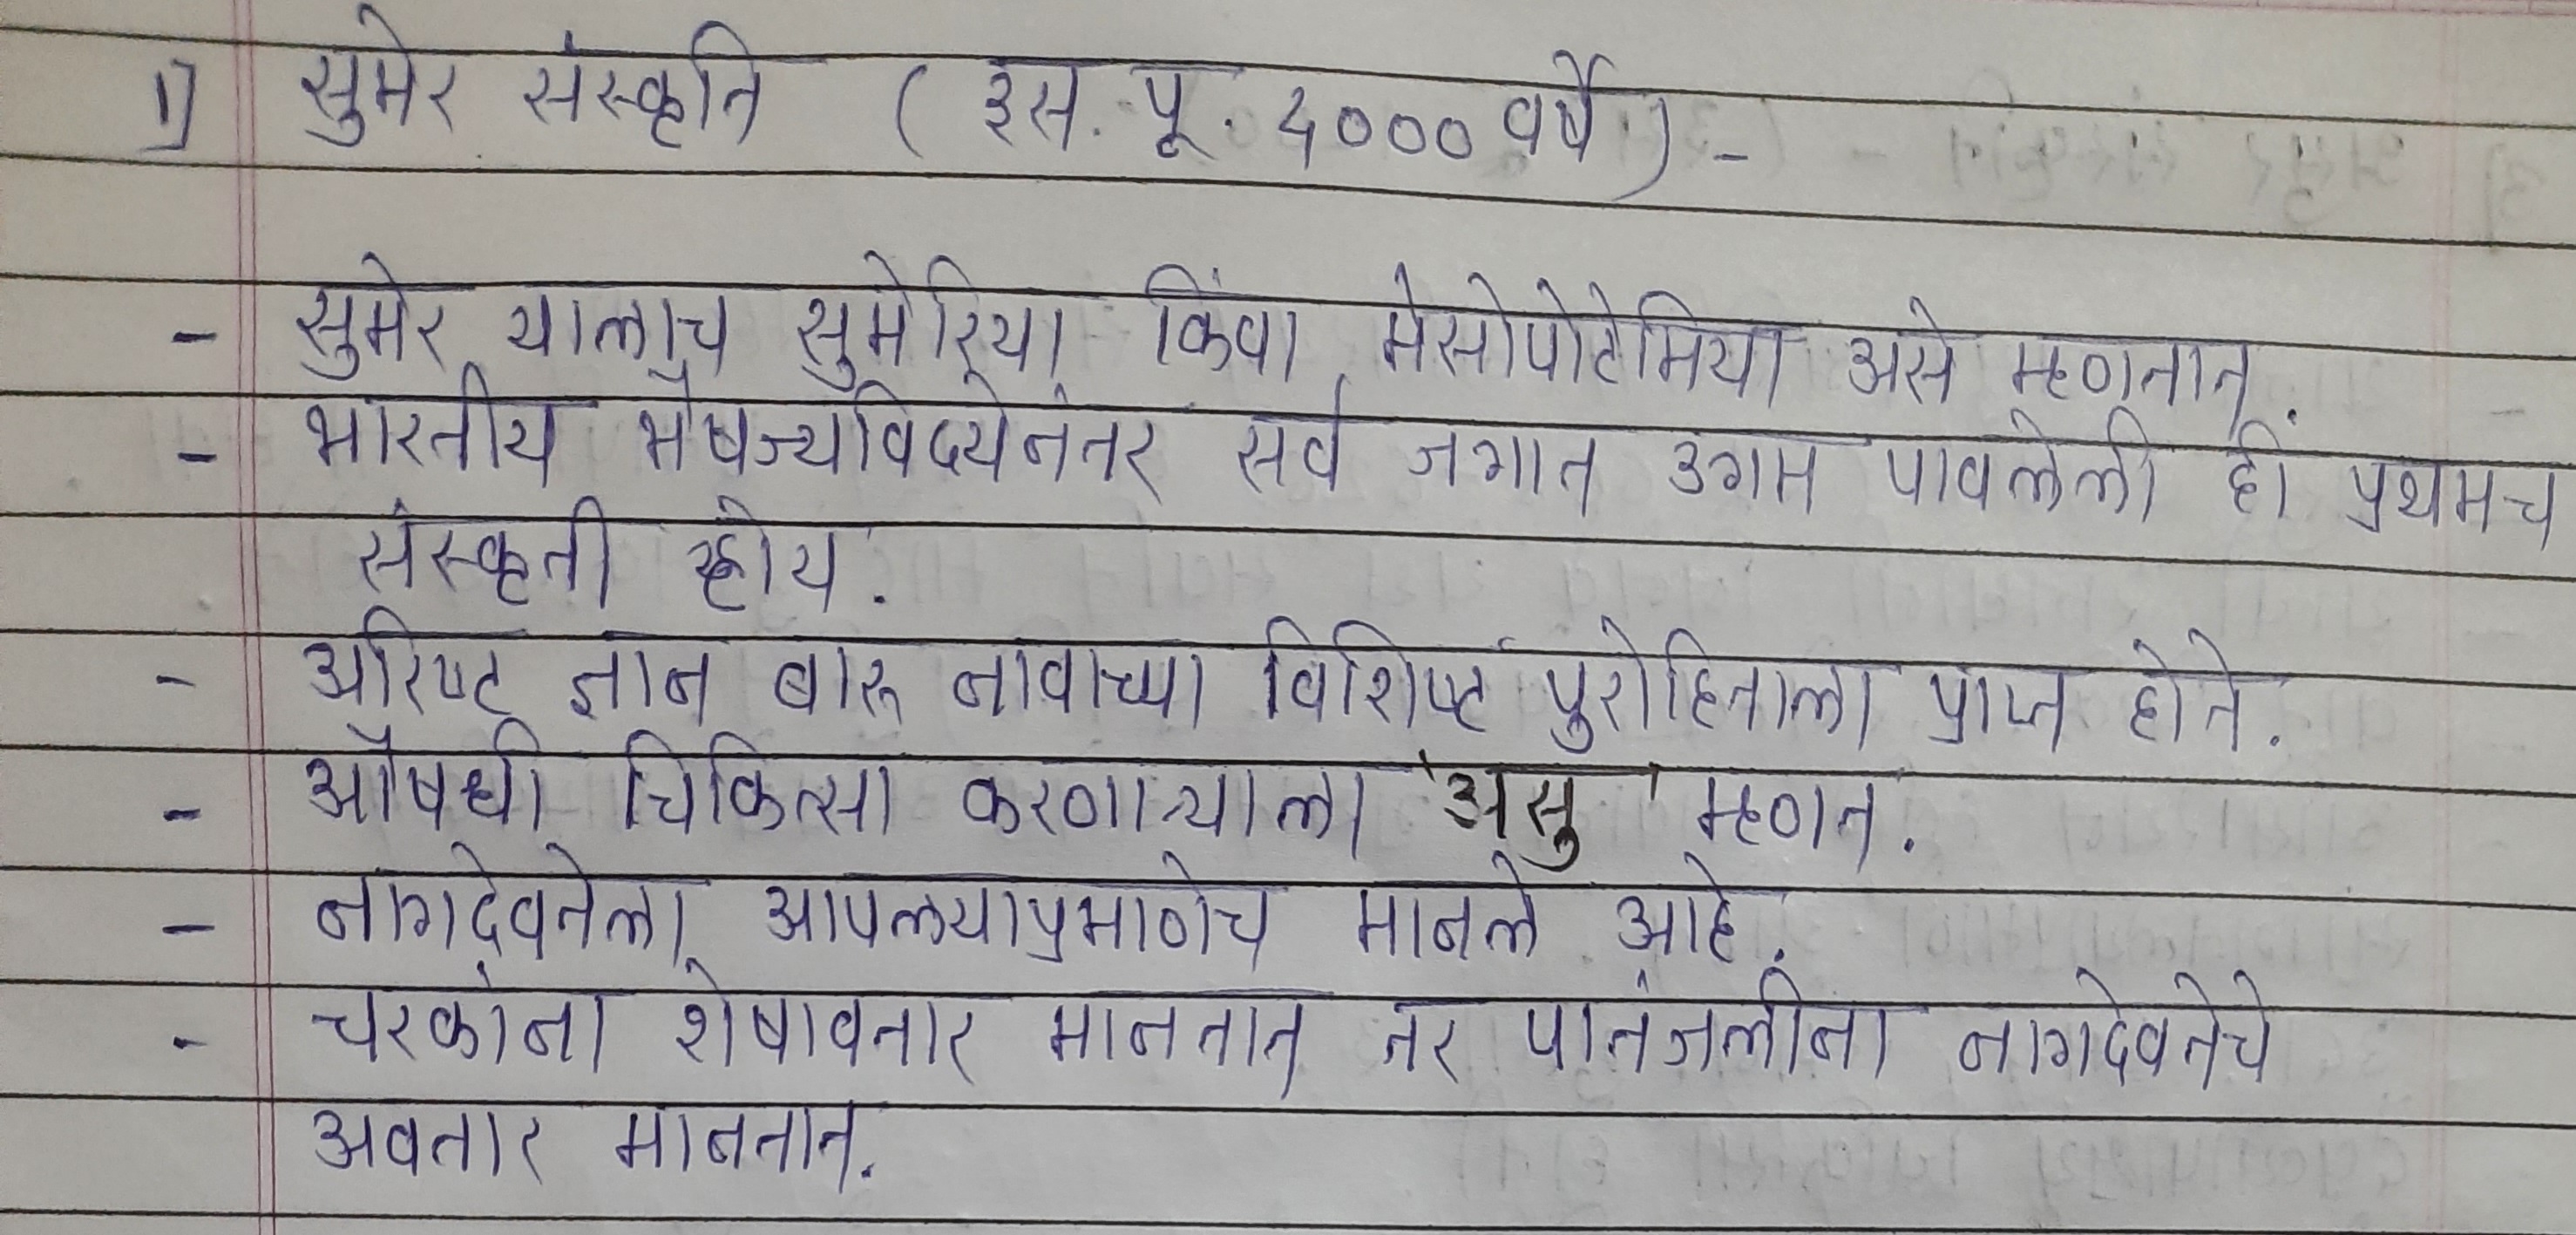 1] सुमेर संस्कृति (इस. पू. 4000 वर्षे) -
- सुमेर यालाच सुमेरिया किंवा मेसोपोटेमिया असे म्हणतात.
- भारतीय भैषज्यविद्येनंतर सर्व जगात उगम पावलेली ही प्रथमच
संस्कृती होय.
- अरिष्ट ज्ञान बारू नावाच्या विशिष्ट पुरोहिताला प्राप्त होते.
- औषधी चिकित्सा करणाऱ्याला 'असु' म्हणत.
- नागदेवतेला आपल्याप्रमाणेच मानले आहे.
- चरकांना शेषावतार मानतात तर पातंजलींना नागदेवतेचे
अवतार मानतात.